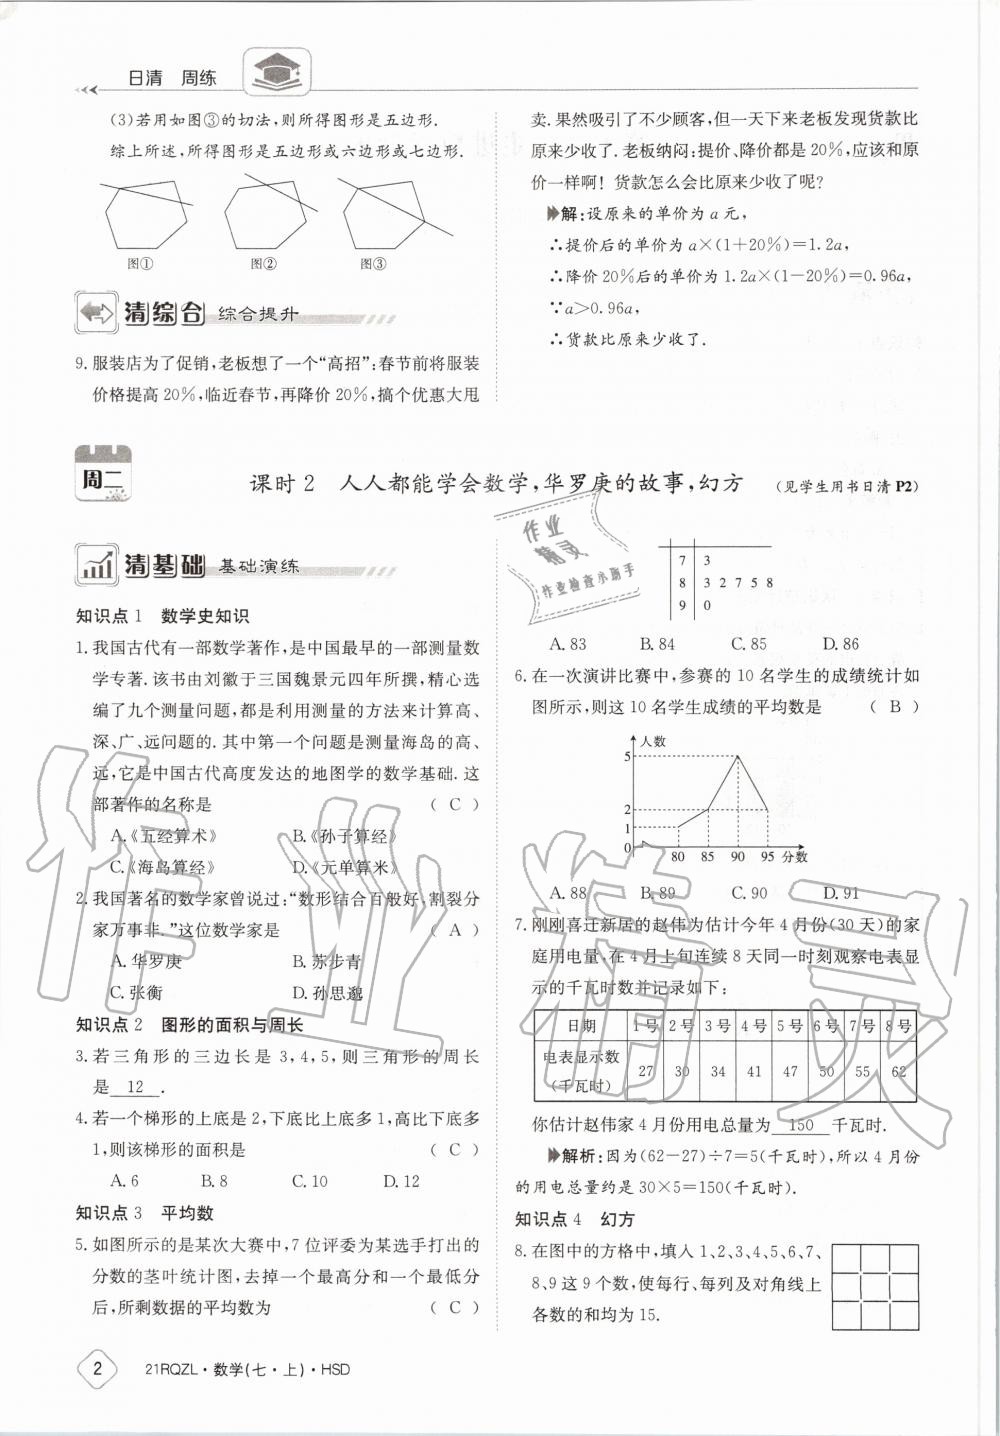 日清 周练
(3)若用如图③的切法,则所得图形是五边形.
综上所述,所得图形是五边形或六边形或七边形.
图① 图② 图③
清综合 综合提升
9.服装店为了促销,老板想了一个“高招”:春节前将服装
价格提高20%,临近春节,再降价20%,搞个优惠大甩
卖.果然吸引了不少顾客,但一天下来老板发现货款比
原来少收了.老板纳闷:提价、降价都是20%,应该和原
价一样啊!货款怎么会比原来少收了呢?
解:设原来的单价为a元,
∴提价后的单价为a×(1+20%)=1.2a,
∴降价20%后的单价为1.2a×(1-20%)=0.96a,
∵a>0.96a,
∴货款比原来少收了.
周二
课时2 人人都能学会数学,华罗庚的故事,幻方 (见学生用书日清P2)
清基础 基础演练
知识点1 数学史知识
1.我国古代有一部数学著作,是中国最早的一部测量数
学专著.该书由刘徽于三国魏景元四年所撰,精心选
编了九个测量问题,都是利用测量的方法来计算高、
深、广、远问题的.其中第一个问题是测量海岛的高、
远,它是中国古代高度发达的地图学的数学基础.这
部著作的名称是 ( C )
A.《五经算术》 B.《孙子算经》
C.《海岛算经》 D.《元单算米》
2.我国著名的数学家曾说过:“数形结合百般好,割裂分
家万事非.”这位数学家是 ( A )
A.华罗庚 B.苏步青
C.张衡 D.孙思邈
知识点2 图形的面积与周长
3.若三角形的三边长是3,4,5,则三角形的周长
是 12 .
4.若一个梯形的上底是2,下底比上底多1,高比下底多
1,则该梯形的面积是 ( C )
A.6 B.8 C.10 D.12
知识点3 平均数
5.如图所示的是某次大赛中,7位评委为某选手打出的
分数的茎叶统计图,去掉一个最高分和一个最低分
后,所剩数据的平均数为 ( C )
7 3
8 3 2 7 5 8
9 0
A.83 B.84 C.85 D.86
6.在一次演讲比赛中,参赛的10名学生的成绩统计如
图所示,则这10名学生成绩的平均数是 ( B )
人数
5
2
1
0
80 85 90 95 分数
A.88 B.89 C.90 D.91
7.刚刚喜迁新居的赵伟为估计今年4月份(30天)的家
庭用电量,在4月上旬连续8天同一时刻观察电表显
示的千瓦时数并记录如下:
日期 1号 2号 3号 4号 5号 6号 7号 8号
电表显示数
(千瓦时) 27 30 34 41 47 50 55 62
你估计赵伟家4月份用电总量为 150 千瓦时.
解析:因为(62-27)÷7=5(千瓦时),所以4月份
的用电总量约是30×5=150(千瓦时).
知识点4 幻方
8.在图中的方格中,填入1、2、3、4、5、6、7、
8、9这9个数,使每行、每列及对角线上
各数的和均为15.
2 21RQZL·数学(七·上)·HSD
作业
精灵
作业检查小助手
作业精灵